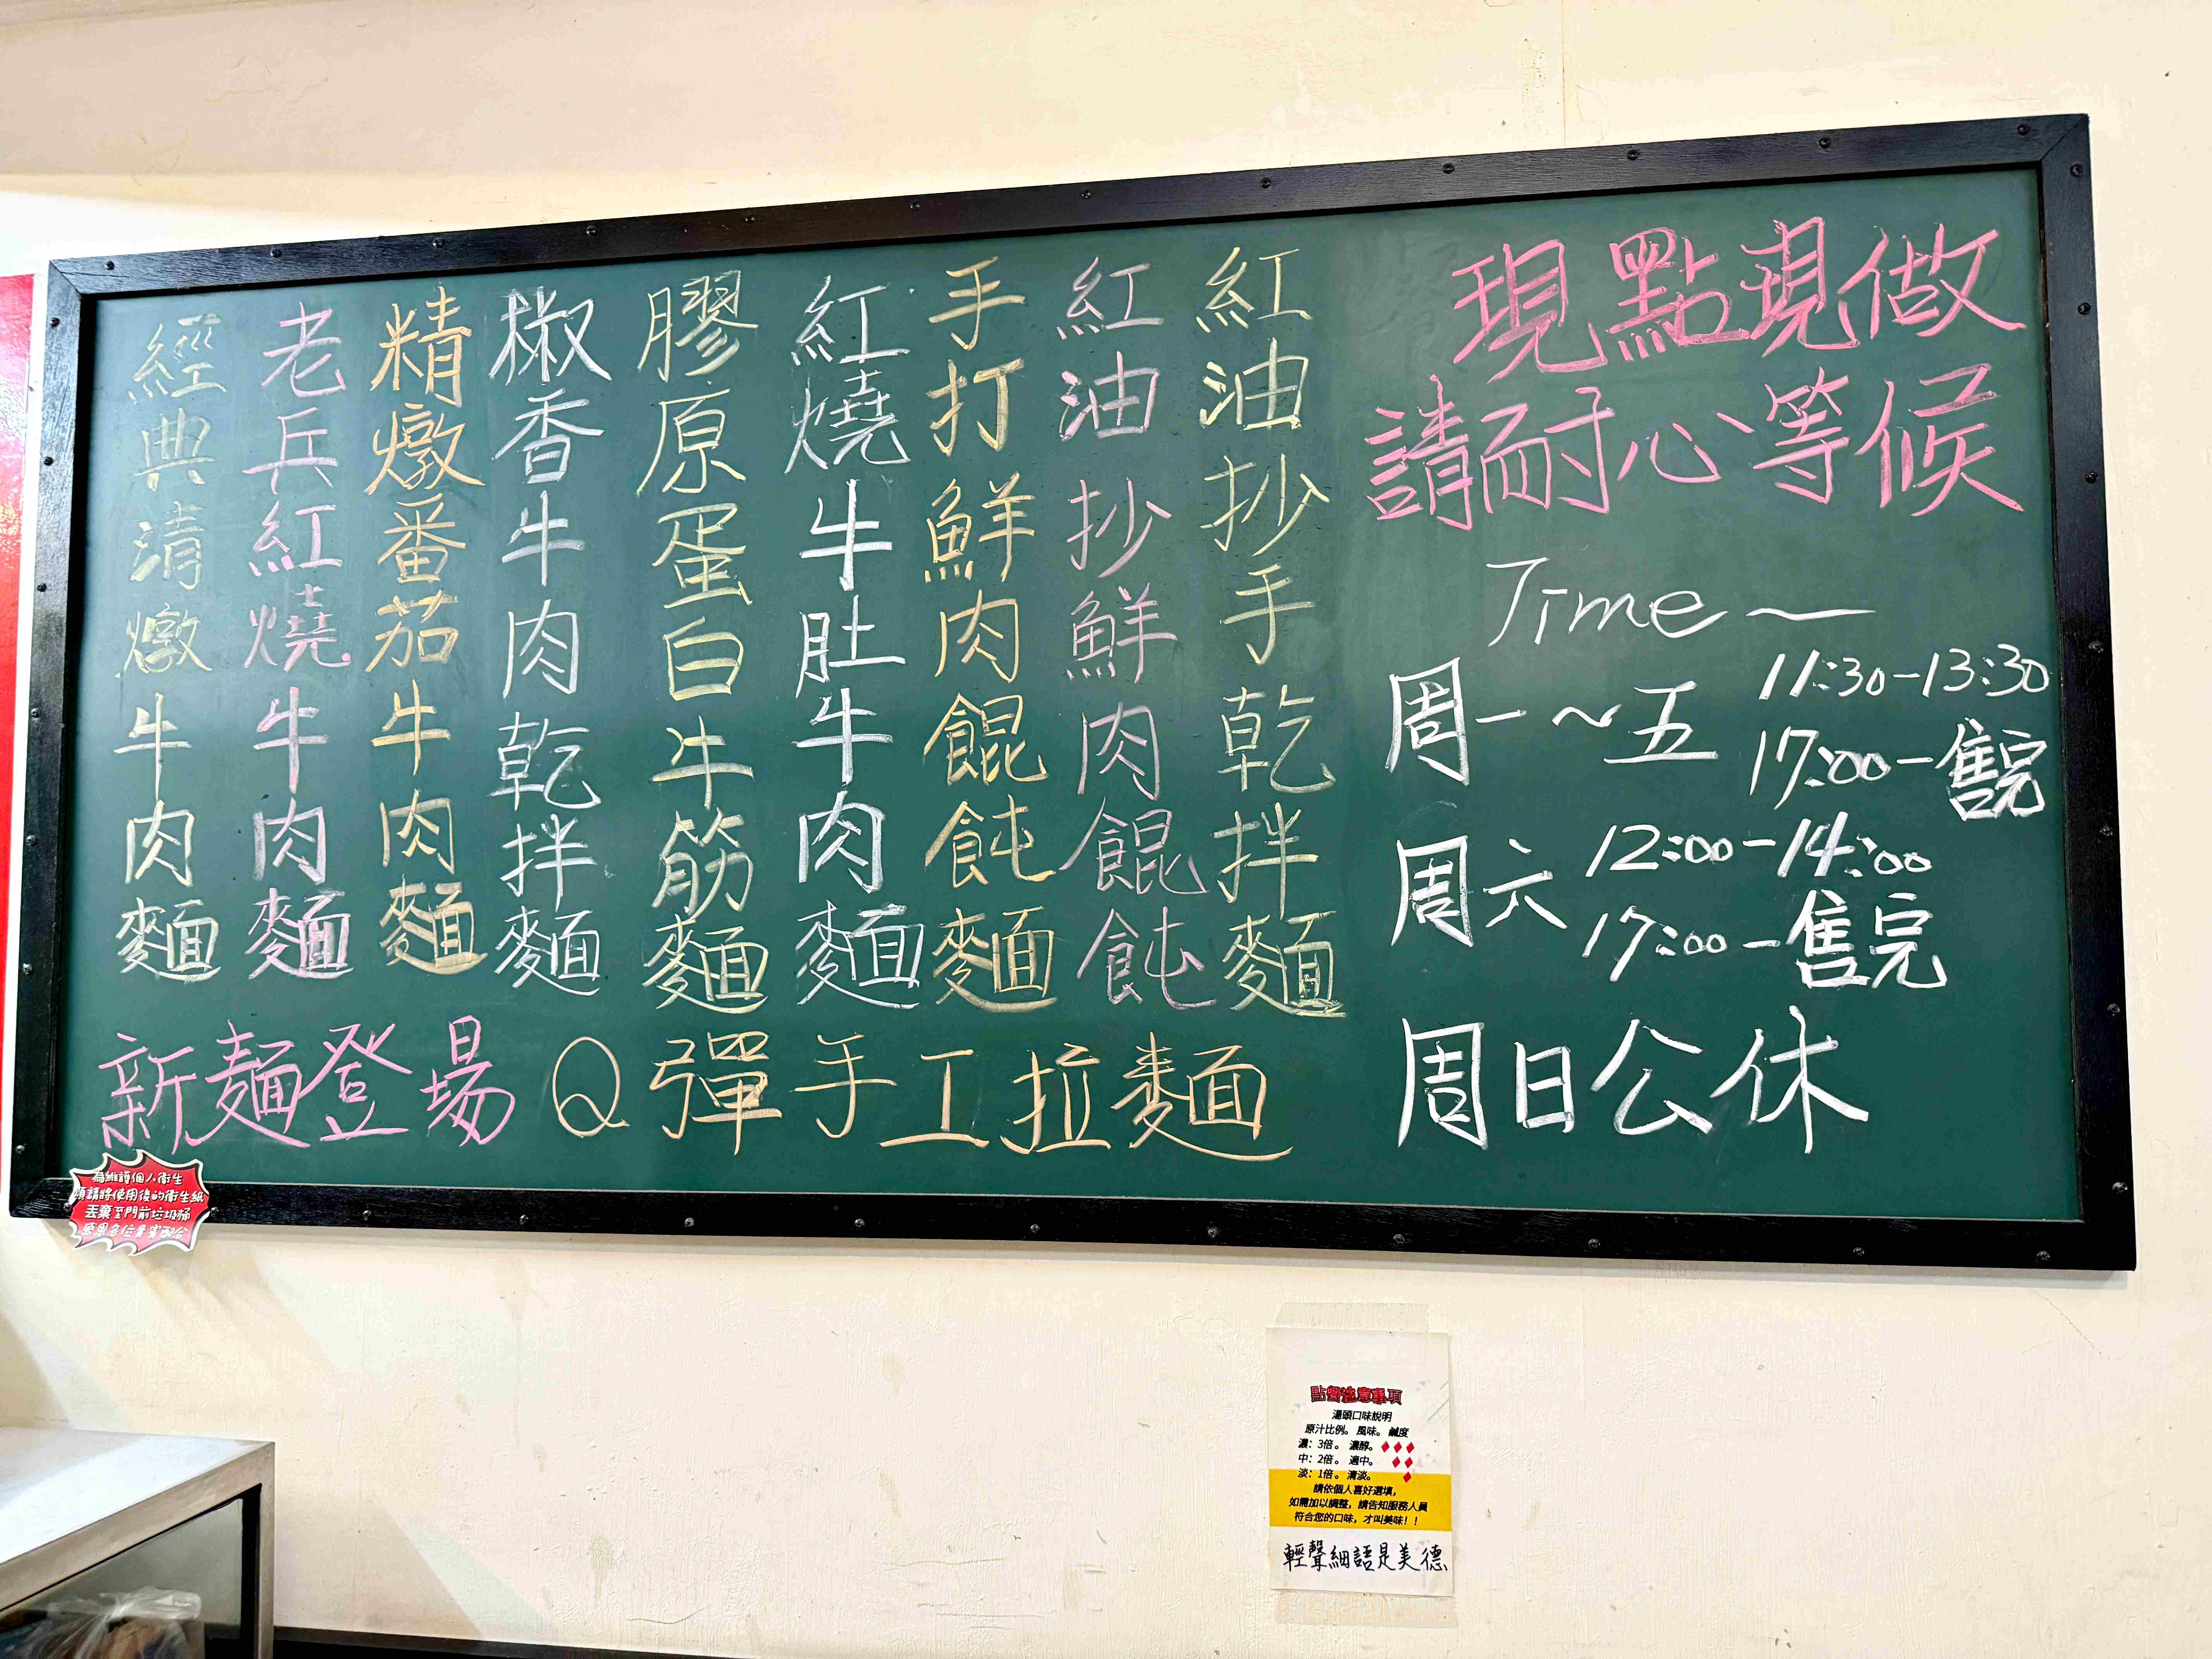 現點現做
請耐心等候
Time~
周一~五
11:30-13:30
17:00-售完
周六
12:00-14:00
17:00-售完
周日公休
紅油抄手乾拌麵
紅油抄鮮肉餛飩
手打鮮肉餛飩麵
紅燒牛肚牛肉麵
膠原蛋白牛筋麵
椒香牛肉乾拌麵
精燉番茄牛肉麵
老兵紅燒牛肉麵
經典清燉牛肉麵
新麵登場 Q彈手工拉麵
為維護個人衛生
煩請將使用後的衛生紙
丟棄至門前垃圾桶
感恩各位貴賓配合
點餐注意事項
湯頭口味說明
原汁比例。風味。鹹度
濃:3倍。濃醇。♦♦♦
中:2倍。適中。♦♦
淡:1倍。清淡。♦
請依個人喜好選填,
如需加以調整,請告知服務人員
符合您的口味,才叫美味!!
輕聲細語是美德